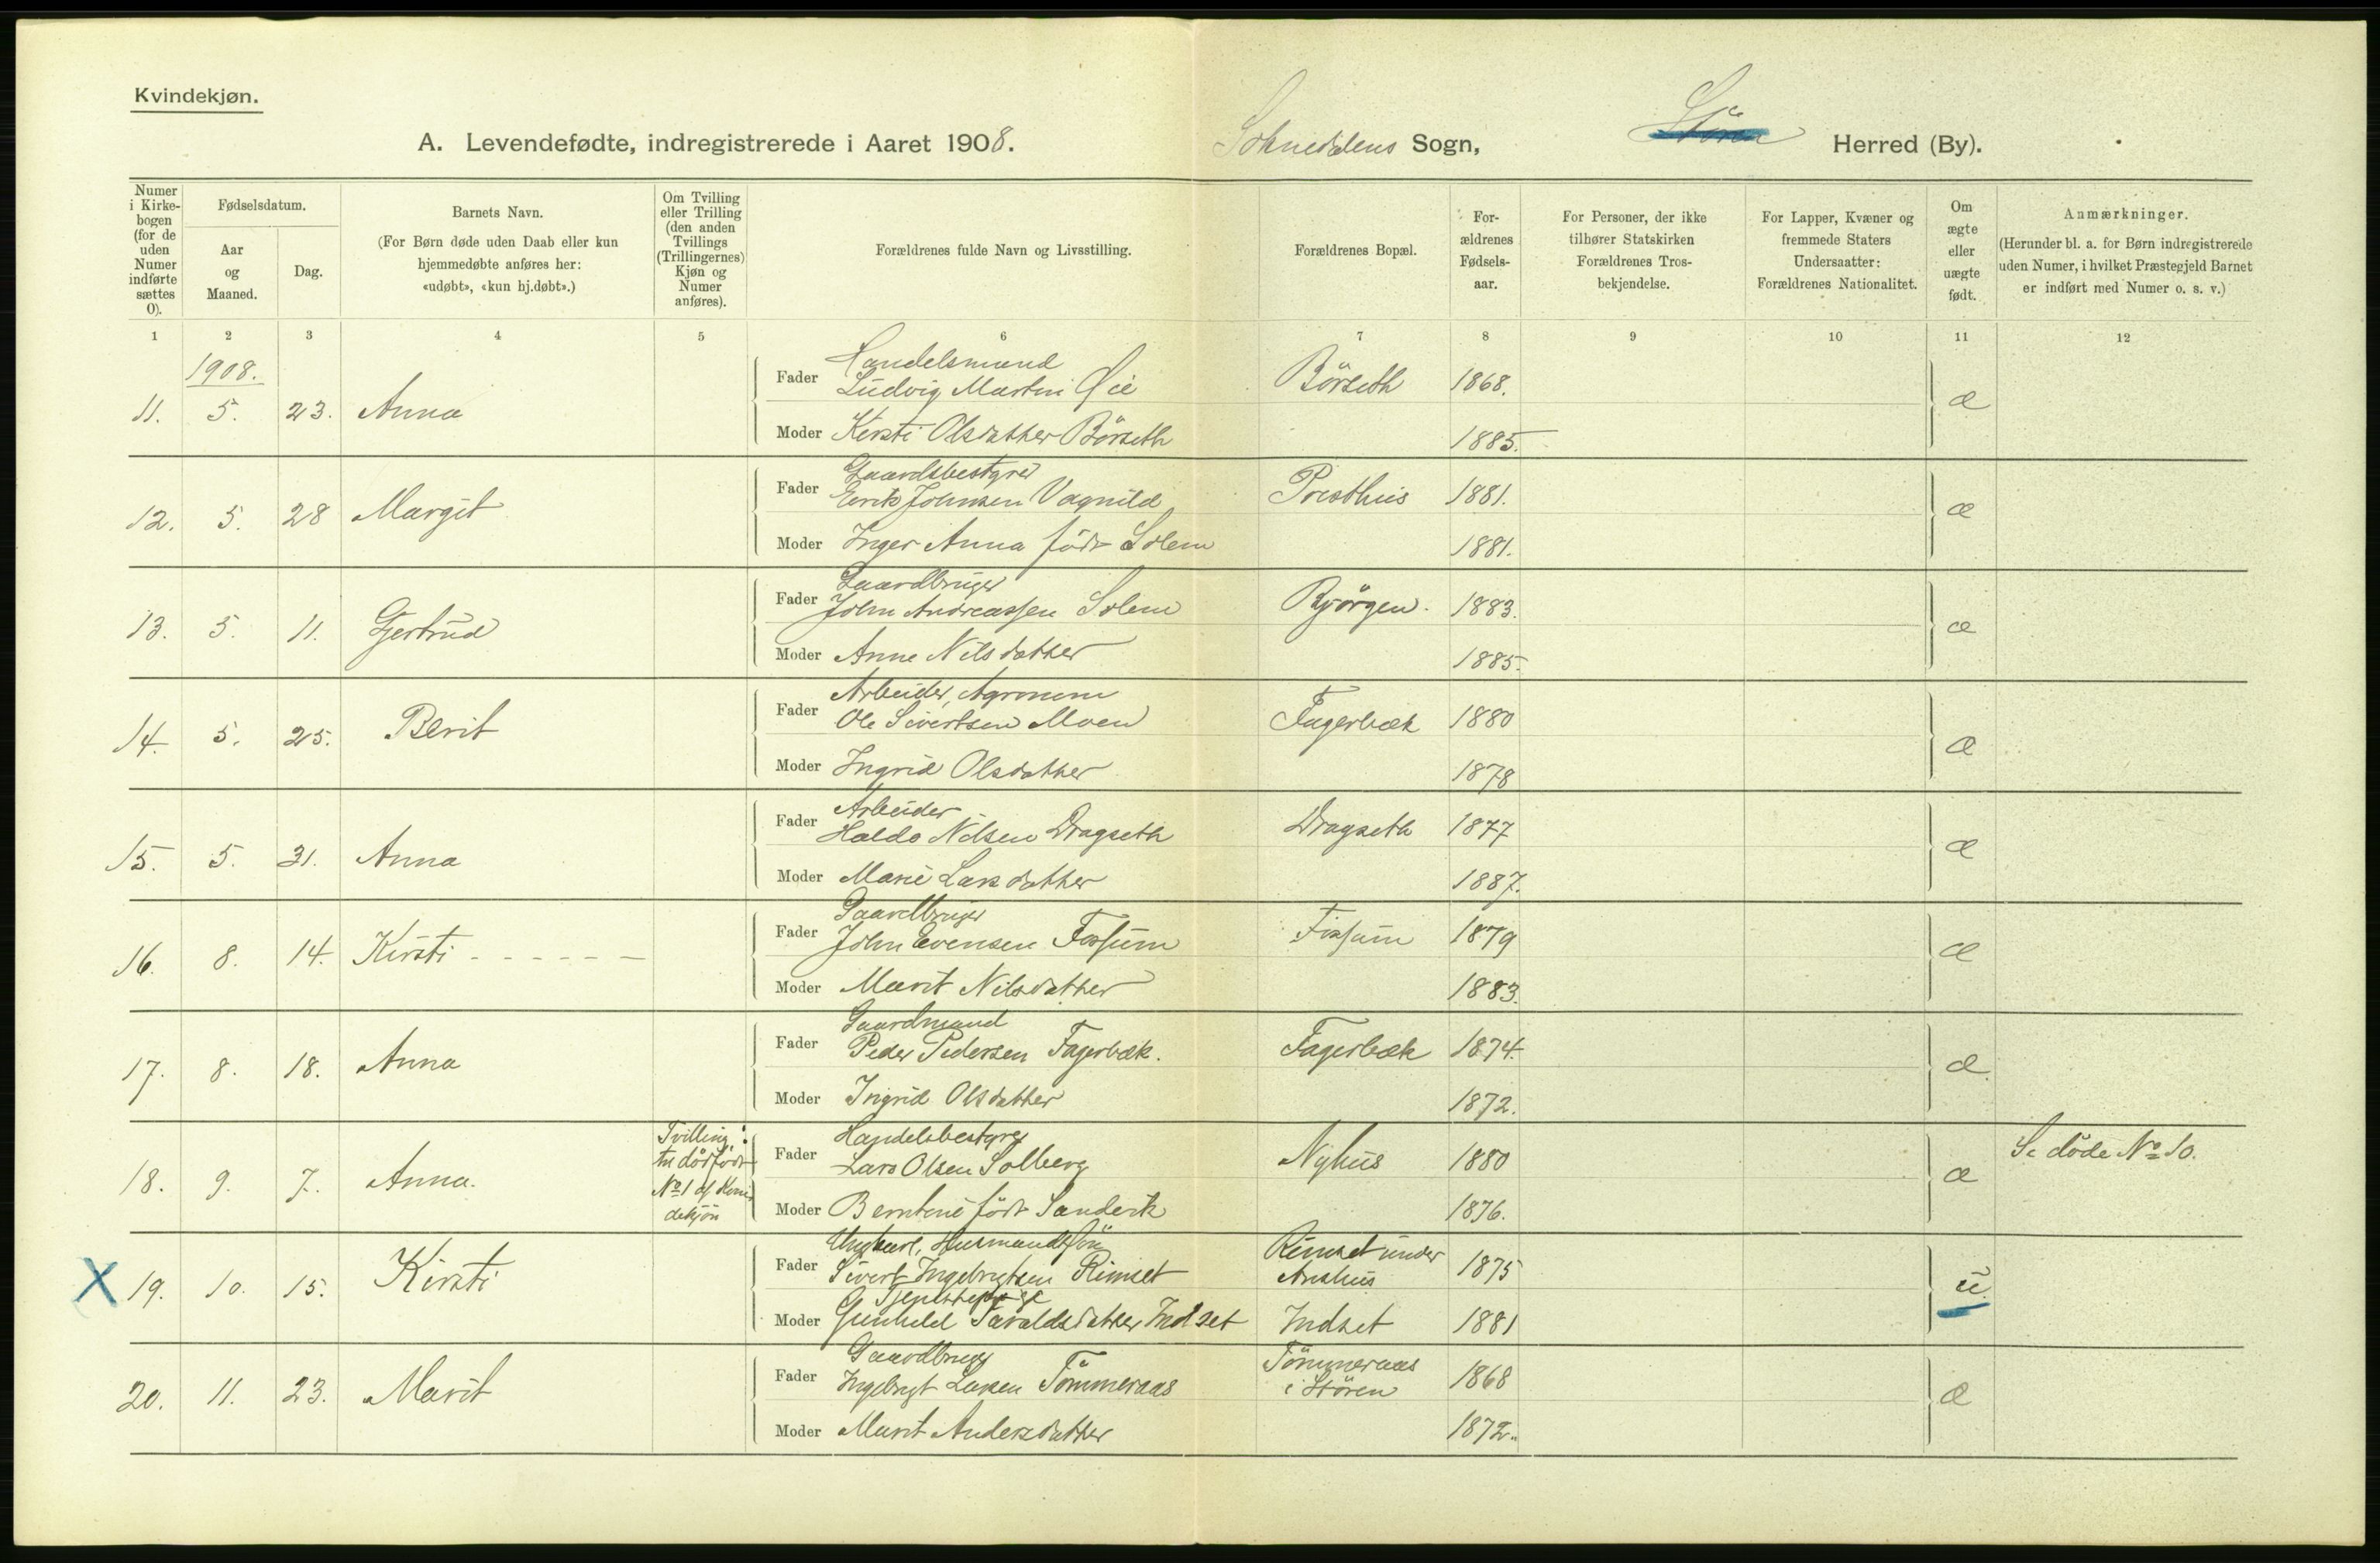 Kvindekjøn.
A. Levendefødte, indregistrerede i Aaret 1908.
Soknedalens Sogn, Støren Herred (By).
Numer i Kirkebogen (for de uden Numer indførte sættes 0).
Fødselsdatum.
Aar og Maaned.
Dag.
Barnets Navn.
(For Børn døde uden Daab eller kun hjemmedøbte anføres her: «udøbt», «kun hj.døbt».)
Om Tvilling eller Trilling (den anden Tvillings (Trillingernes) Kjøn og Numer anføres).
Forældrenes fulde Navn og Livsstilling.
Forældrenes Bopæl.
Forældrenes Fødselsaar.
For Personer, der ikke tilhører Statskirken Forældrenes Trosbekjendelse.
For Lapper, Kvæner og fremmede Staters Undersaatter: Forældrenes Nationalitet.
Om ægte eller uægte født.
Anmærkninger.
(Herunder bl. a. for Børn indregistrerede uden Numer, i hvilket Præstegjeld Barnet er indført med Numer o. s. v.)
1 2 3 4 5 6 7 8 9 10 11 12
1908.
Handelsmand
11. 5. 23. Anna Fader Ludvig Martin Øie Börseth 1868. æ
Moder Kirsti Olsdatter Börseth 1885.
Gaardsbestyrer
12. 5. 28 Margit Fader Henrik Johnsen Vagnild Presthus 1881. æ
Moder Inger Anna född Solem 1881.
Gaardbruger
13. 5. 11. Gjertrud Fader John Andreassen Solem Bjørgen. 1883. æ
Moder Anne Nilsdatter 1885.
Arbeider, Agronom
14. 5. 25. Berit Fader Ole Sivertsen Moen Fagerbæk 1880 æ
Moder Ingrid Olsdatter 1878
Arbeider
15. 5. 31. Anna Fader Haldo Nilsen Dragseth Dragseth 1877 æ
Moder Marie Larsdatter 1887.
Gaardbruger
16. 8. 14. Kirsti Fader John Evensen Fossum Fossum 1879 æ
Moder Marit Nilsdatter 1883.
Gaardmand
17. 8. 18. Anna Fader Peder Pedersen Fagerbæk. Fagerbæk 1874. æ
Moder Ingrid Olsdatter 1872.
Tvilling: til dödfödt No 1 af Kvindekjön
Handelsbestyrer
18. 9. 7. Anna. Fader Lars Olsen Solberg Nyhus 1880 æ Se døde No 10.
Moder Berntine född 1876.
Ungkarl, Husmandssön
X 19. 10. 15. Kirsti Fader Sivert Ingebrigtsen Rimset Rimset under 1875 u.
Tjenestepige
Moder Gunhild Taraldsdatter Indset Indset 1881
Gaardbruger
20. 11. 23. Marit Fader Ingebrigt Larsen Tömmeraas Tömmeraas i Stören 1868 æ
Moder Marit Andersdatter 1872.